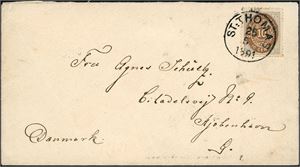 ST. THOMAS
25
Fra Agnes Schultz
Citadelsvej No 9.
Kjöbenhavn
Danmark